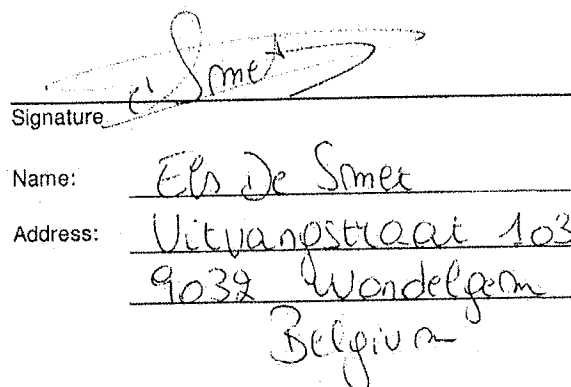 d' Smet
Signature
Name: Els De Smet
Address: Uitvangstraat 103
9032 Wondelgem
Belgium